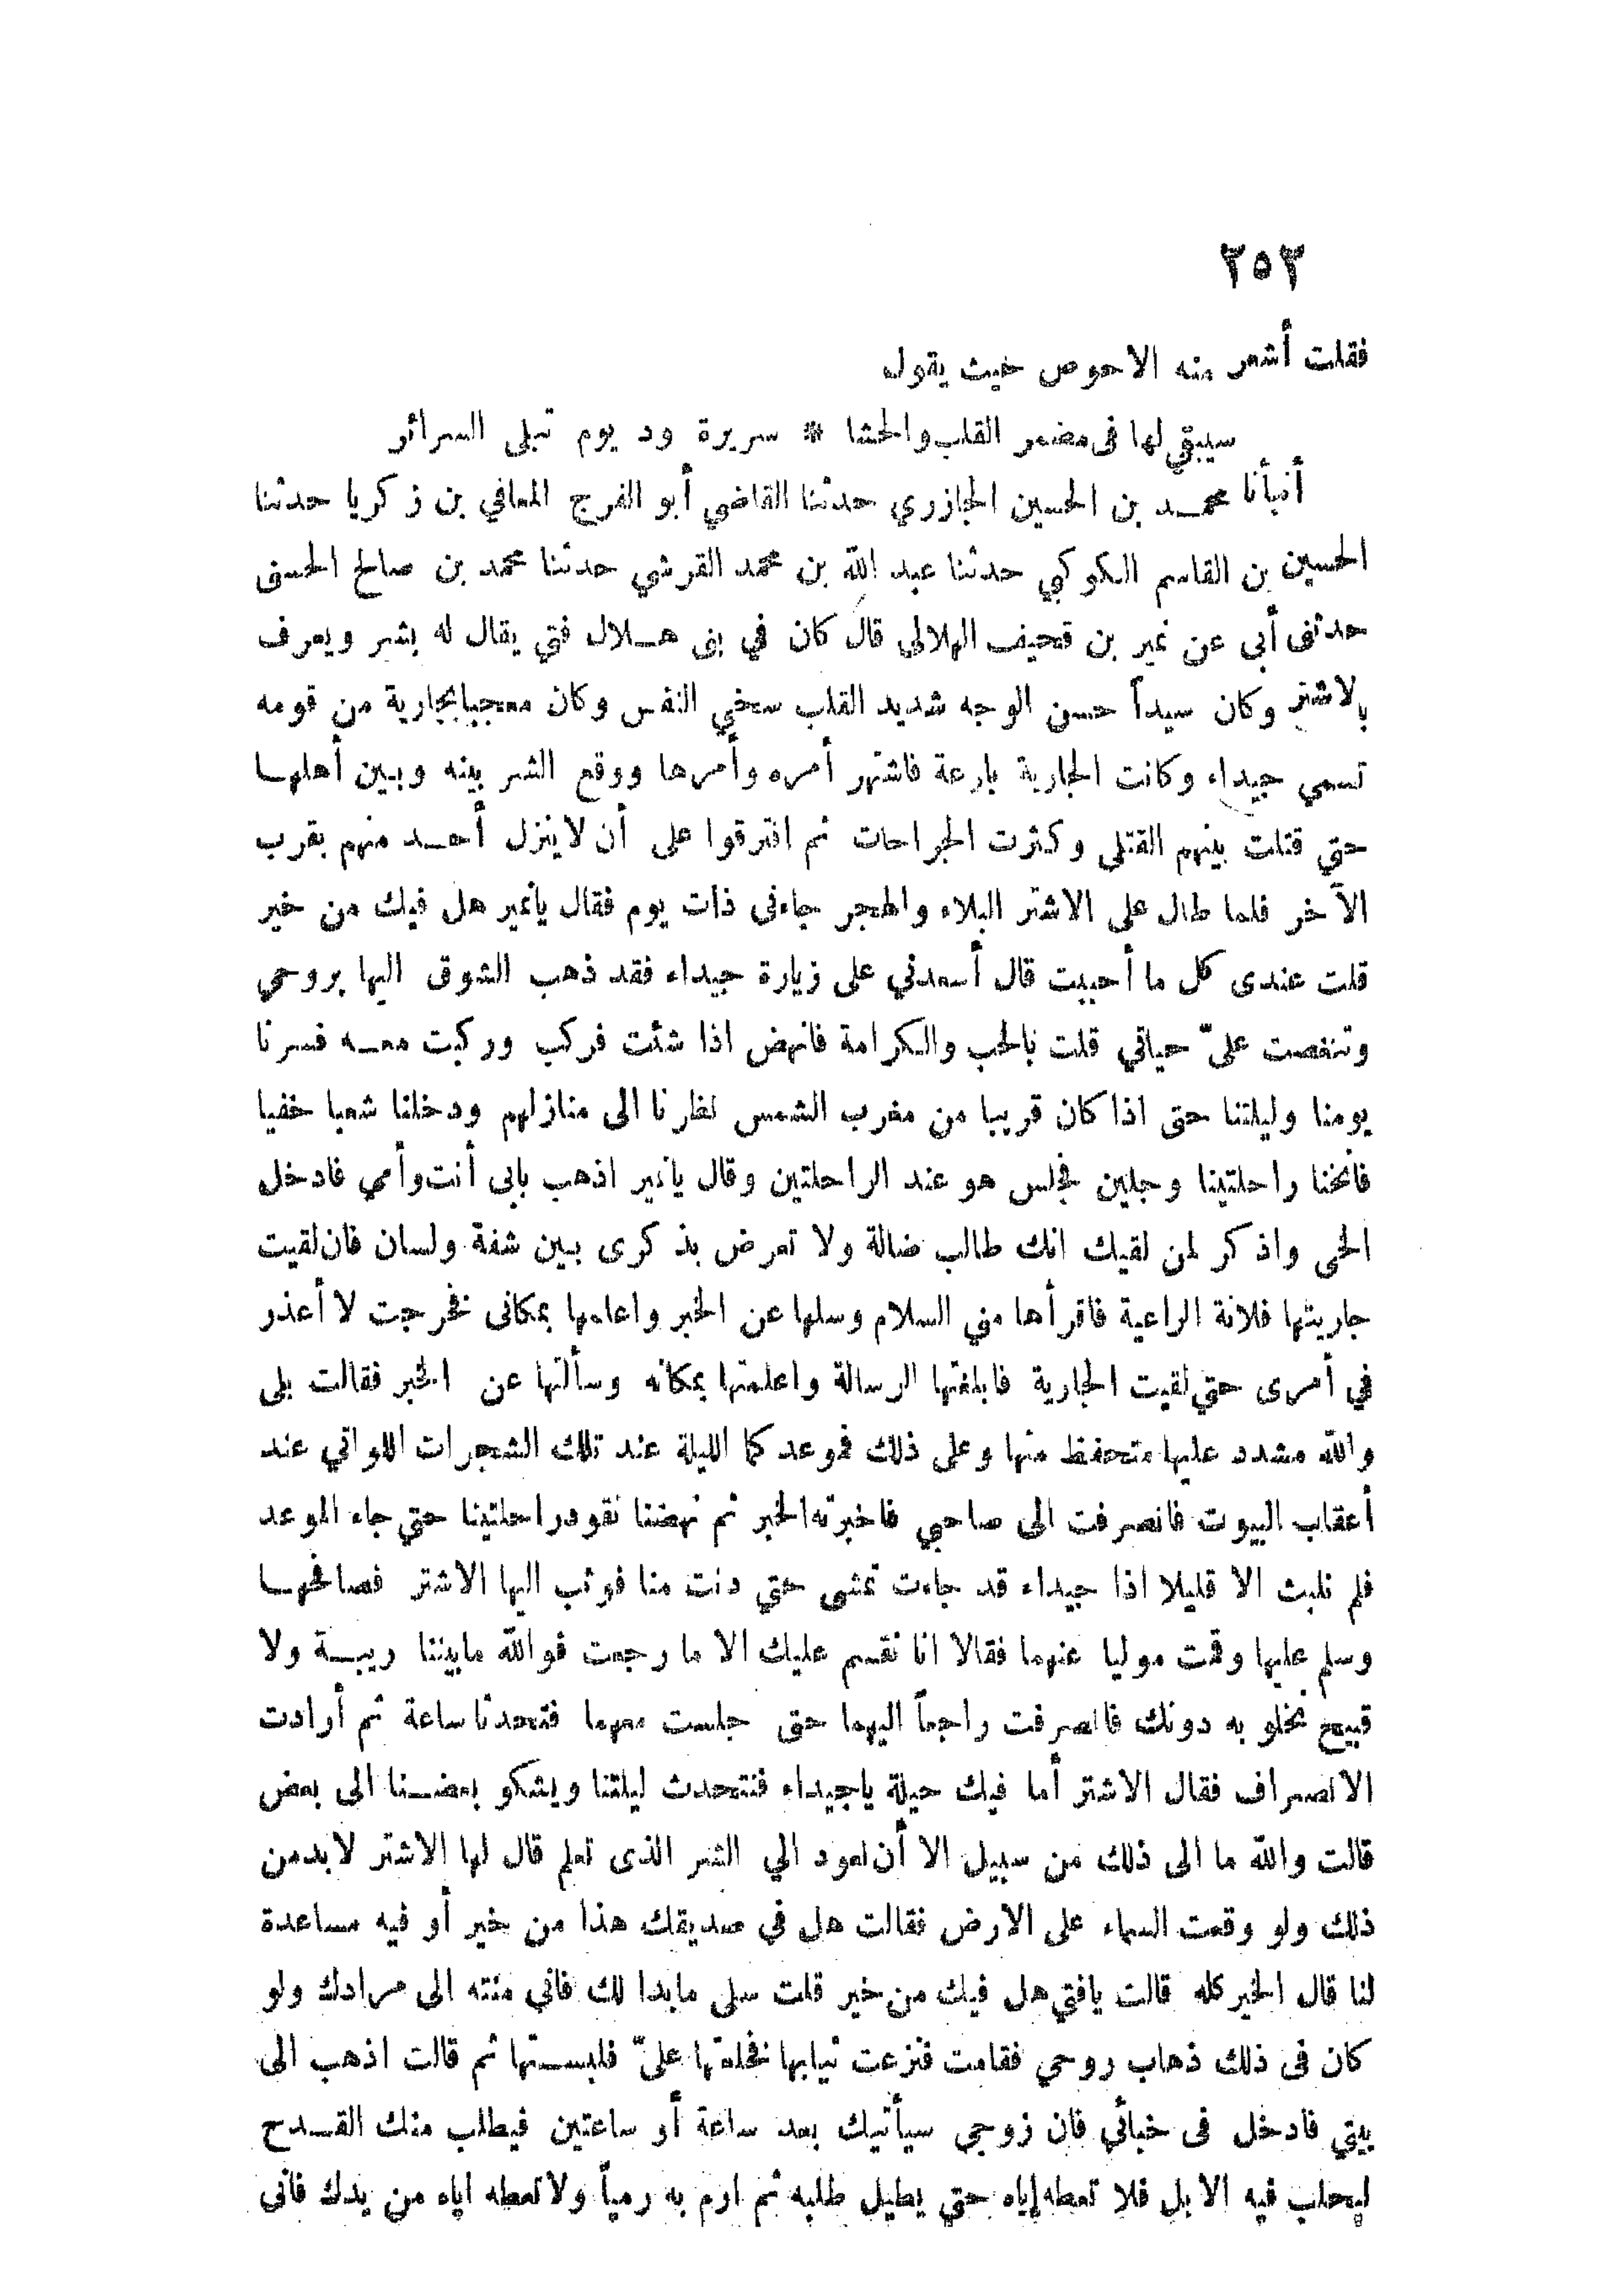 ٣٥٣
فقلت أشعر منه الاحوص حيث يقول
سيبقي لها فى مضمر القلب والحشا * سريرة ود يوم تبلى السرائر
أنبأنا محمد بن الحسين الجازري حدثنا القاضي أبو الفرج المعافي بن زكريا حدثنا
الحسين بن القاسم الكوكبي حدثنا عبد الله بن محمد القرشي حدثنا محمد بن صالح الحسنى
حدثنى أبى عن نمير بن قحيف الهلالى قال كان في بنى هلال فتي يقال له بشر ويعرف
بالاشتر وكان سيداً حسن الوجه شديد القلب سخي النفس وكان معجبا بجارية من قومه
تسمي جيداء وكانت الجارية بارعة فاشتهر أمره وأمرها ووقع الشر بينه وبين أهلها
حتي قتلت بينهم القتلى وكثرت الجراحات ثم افترقوا على أن لا ينزل أحد منهم بقرب
الآخر فلما طال على الاشتر البلاء والهجر جاءنى ذات يوم فقال يانمير هل فيك من خير
قلت عندى كل ما أحببت قال أسعدني على زيارة جيداء فقد ذهب الشوق اليها بروحي
وتنغصت علىّ حياتي قلت بالحب والكرامة فانهض اذا شئت فركب وركبت معه فسرنا
يومنا وليلتنا حتى اذا كان قريبا من مغرب الشمس نظرنا الى منازلهم ودخلنا شعبا خفيا
فانخنا راحلتينا وجلين فجلس هو عند الراحلتين وقال يانمير اذهب بابى أنت وأمي فادخل
الحى واذكر لمن لقيك انك طالب ضالة ولا تعرض بذكرى بين شفة ولسان فان لقيت
جاريتها فلانة الراعية فاقرأها مني السلام وسلها عن الخبر واعلمها بمكانى فخرجت لا أعذر
في أمرى حتي لقيت الجارية فابلغتها الرسالة واعلمتها بمكانه وسألتها عن الخبر فقالت بلى
والله مشدد عليها متحفظ منها وعلى ذلك فموعدكما الليلة عند تلك الشجرات اللواتي عند
أعقاب البيوت فانصرفت الى صاحبي فاخبرته الخبر ثم نهضنا نقود راحلتينا حتي جاء الموعد
فلم نلبث الا قليلا اذا جيداء قد جاءت تمشى حتي دنت منا فوثب اليها الاشتر فصافحها
وسلم عليها وقمت موليا عنهما فقالا انا نقسم عليك الا ما رجعت فوالله مابيننا ريبة ولا
قبيح نخلو به دونك فانصرفت راجعاً اليهما حتى جلست معهما فتحدثا ساعة ثم أرادت
الانصراف فقال الاشتر أما فيك حيلة ياجيداء فنتحدث ليلتنا ويشكو بعضنا الى بعض
قالت والله ما الى ذلك من سبيل الا أن نعود الي الشر الذى تعلم قال لها الاشتر لابد من
ذلك ولو وقعت السماء على الارض فقالت هل في صديقك هذا من خير أو فيه مساعدة
لنا قال الخير كله قالت يافتي هل فيك من خير قلت سلى مابدا لك فاني منته الى مرادك ولو
كان فى ذلك ذهاب روحي فقامت فنزعت ثيابها فخلعتها علىّ فلبستها ثم قالت اذهب الى
بيتي فادخل فى خبائي فان زوجي سيأتيك بعد ساعة أو ساعتين فيطلب منك القدح
ليحلب فيه الابل فلا تعطه إياه حتي يطيل طلبه ثم ارم به رمياً ولا تعطه اياه من يدك فانى